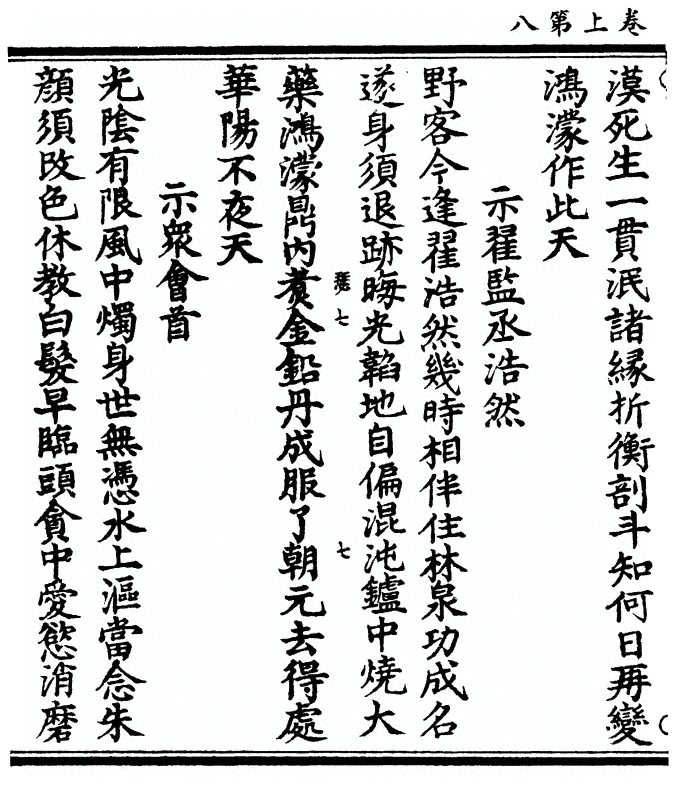 卷上第八
漠死生一貫泯諸縁折衡剖斗知何日再變
鴻濛作此天
示翟監丞浩然
野客今逢翟浩然幾時相伴住林泉功成名
遂身須退跡晦光韜地自偏混沌鑪中燒大
七
七
藥鴻濛鼎内養金鉛丹成服了朝元去得處
華陽不夜天
示眾會首
光陰有限風中燭身世無憑水上漚當念朱
顔須改色休教白髮早臨頭貪中愛慾消磨